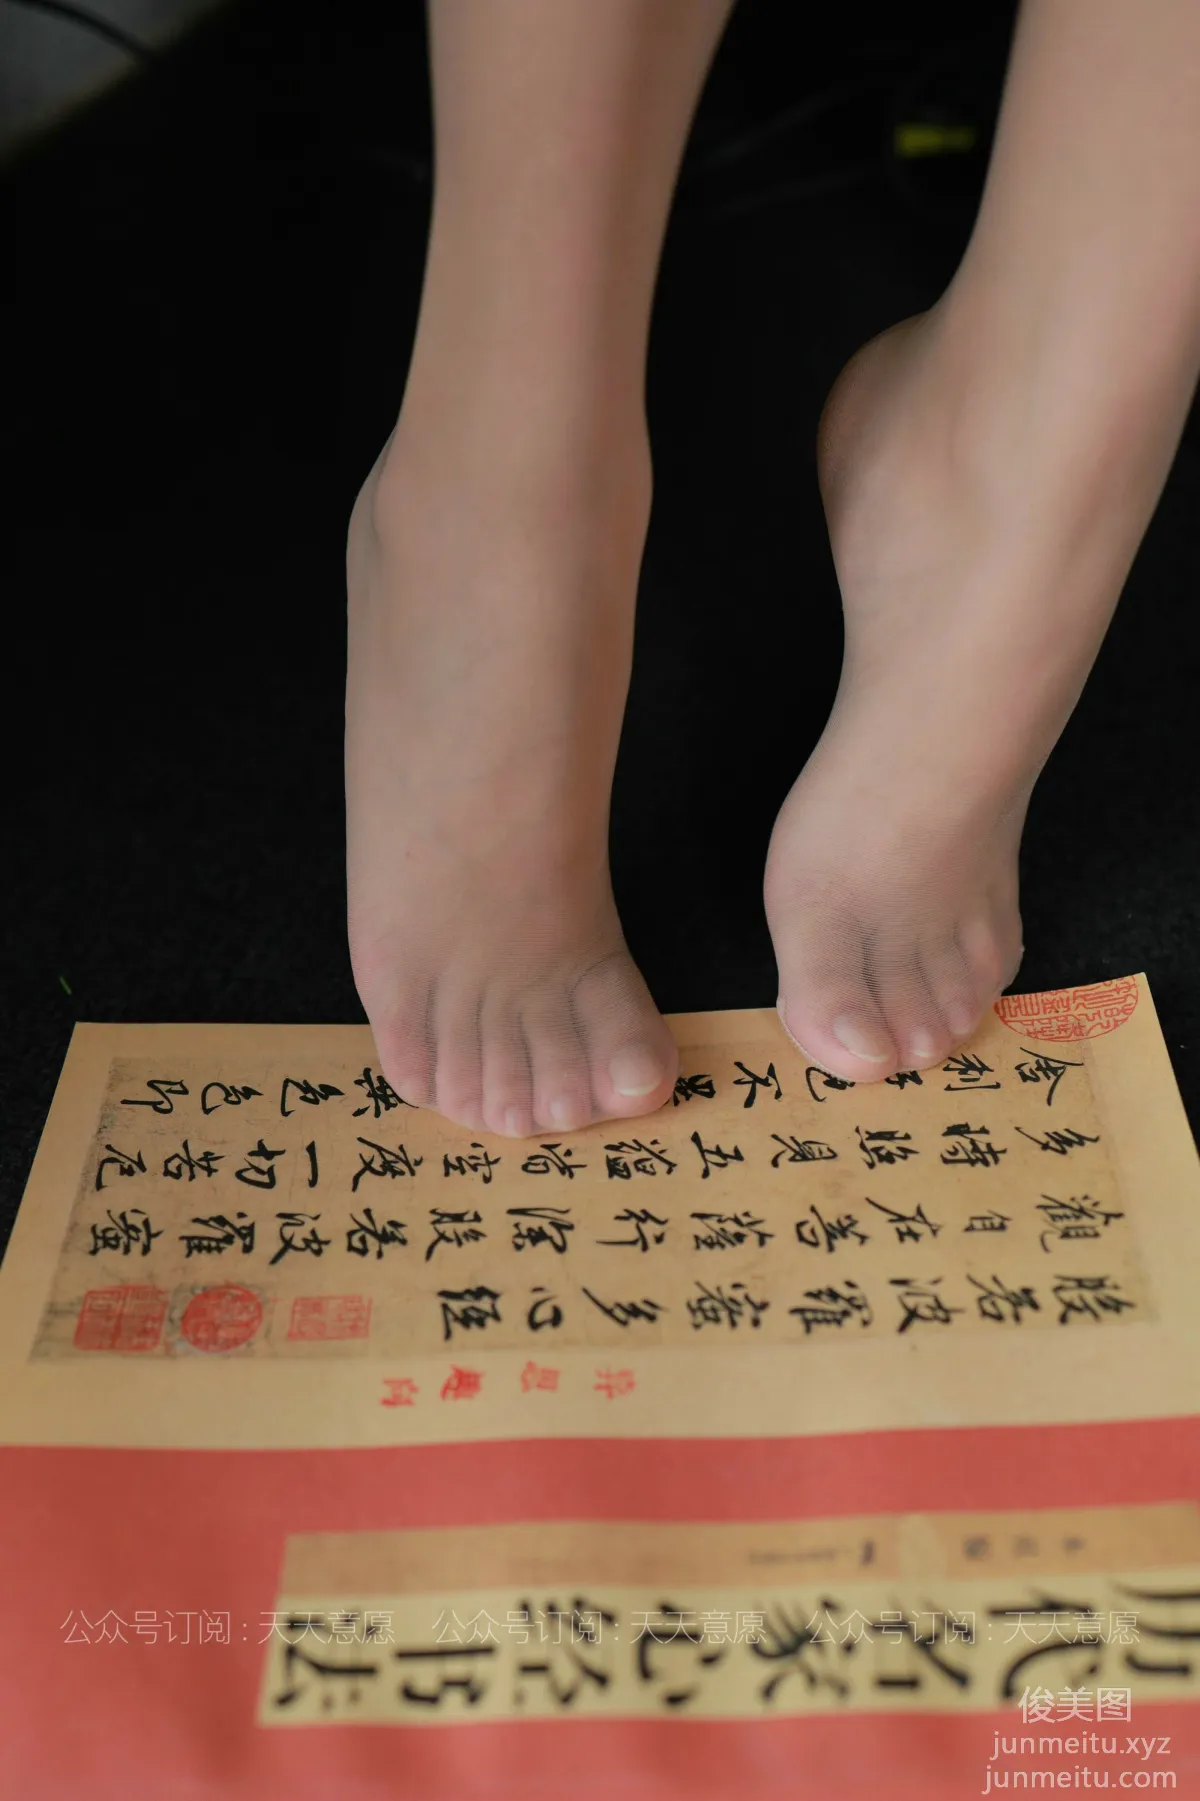 般若波羅蜜多心經
觀自在菩薩行深般若波羅蜜
多時照見五蘊皆空度一切苦厄
舍利子色不異
異色色即
历代名家心经书法
公众号订阅：天天意愿 公众号订阅：天天意愿 公众号订阅：天天意愿
俊美图
junmeitu.xyz
junmeitu.com